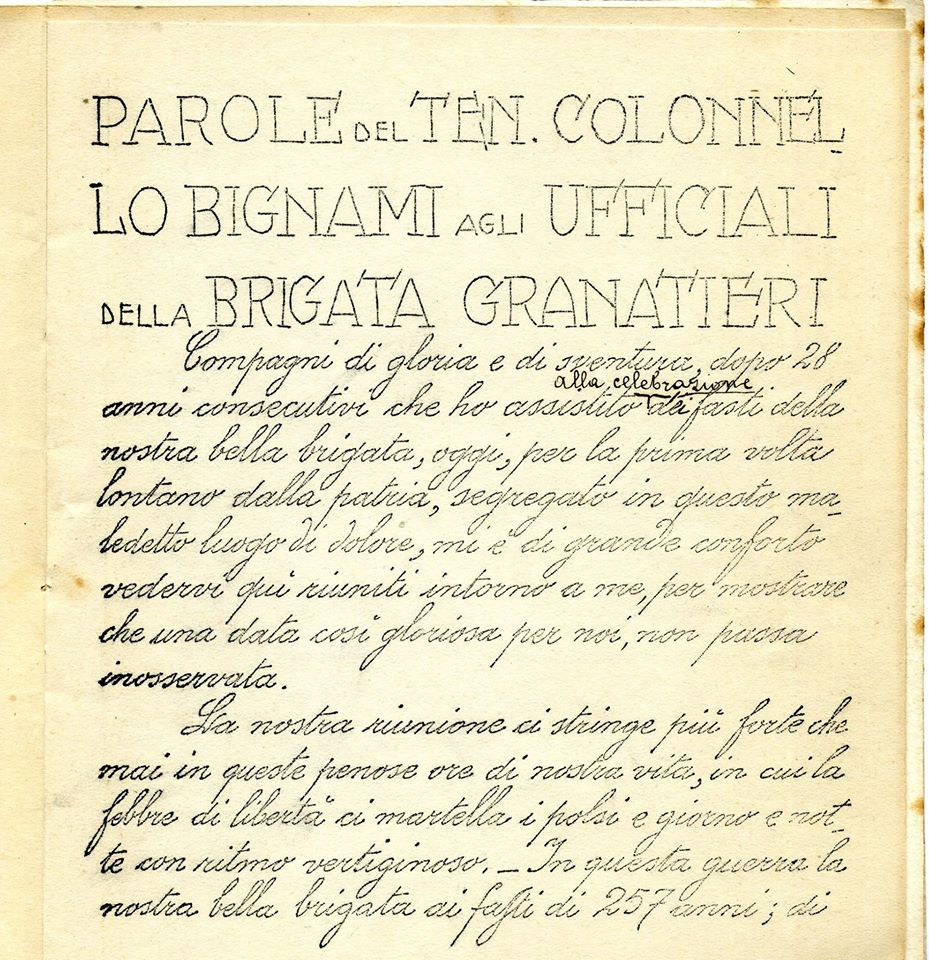 PAROLE DEL TEN. COLONNEL
LO BIGNAMI AGLI UFFICIALI
DELLA BRIGATA GRANATIERI
Compagni di gloria e di sventura, dopo 28
alla celebrazione
anni consecutivi che ho assistito dei fasti della
nostra bella brigata, oggi, per la prima volta
lontano dalla patria, segregato in questo ma-
ledetto luogo di dolore, mi è di grande conforto
vedervi quì riuniti intorno a me, per mostrare
che una data così gloriosa per noi, non passa
inosservata.
La nostra riunione ci stringe più forte che
mai in queste penose ore di nostra vita, in cui la
febbre di libertà ci martella i polsi e giorno e not-
te con ritmo vertiginoso. _ In questa guerra la
nostra bella brigata ai fasti di 257 anni ; di